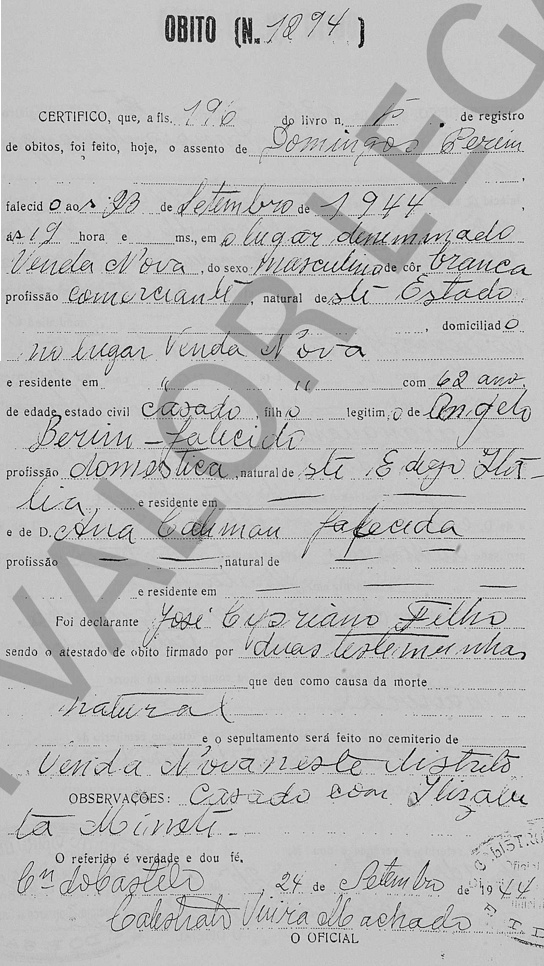 OBITO (N. 1294)
CERTIFICO, que, a fls. 196 do livro n. de registro
de obitos, foi feito, hoje, o assento de Domingos Perim
falecido aos 23 de Setembro de 1944,
ás 19 hora e ms., em o lugar denominado
Venda Nova, do sexo masculino de côr branca
profissão comerciante, natural deste Estado
, domiciliado
no lugar Venda Nova
e residente em " " com 62 ano.
de edade, estado civil casado, filho legitimo de Angelo
Berim - falecido
profissão domestica, natural de ste Itá-
lia, e residente em — —
e de D. Ana falecida
profissão — —, natural de — —
e residente em — — —
Foi declarante José Cypriano Filho
sendo o atestado de obito firmado por duas testemunhas
que deu como causa da morte
natural
e o sepultamento será feito no cemiterio de
Venda Nova neste distrito
OBSERVAÇÕES: Casado com Elizabe
ta Mineti -
O referido é verdade e dou fé.
Cn do Castelo, 24 de Setembro de 1944
Vieira Machado
O OFICIAL
VALOR LEGA